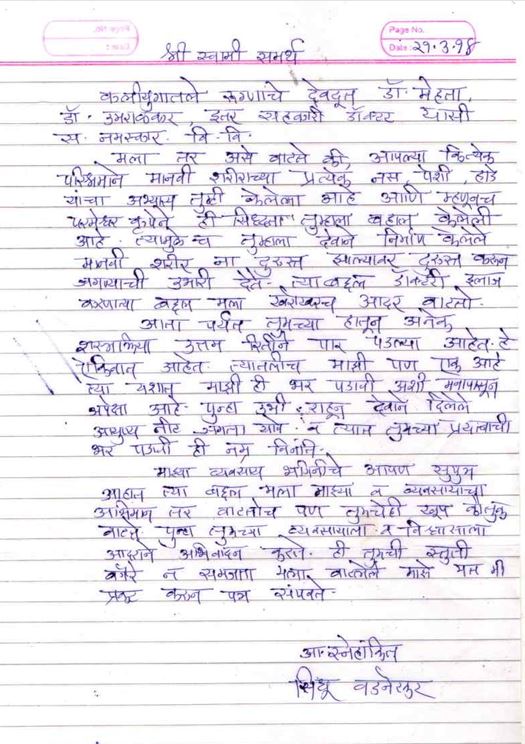 Page No.
Date: 29.3.98
श्री स्वामी समर्थ
कलीयुगातले रुग्णाचे देवदूत डॉ. मेहता,
डॉ. उमराळकर, इतर सहकारी डॉक्टर यासी
स. नमस्कार. वि. वि.
मला तर असे वाटते की, आपल्या कित्येक
परिश्रमाने मानवी शरीराच्या प्रत्येक नस पेशी, हाडे
यांचा अभ्यास तुम्ही केलेला आहे आणि म्हणूनच
परमेश्वर कृपेने ही सिध्दता तुम्हाला बहाल केलेली
आहे. त्यामुळेच तुम्हाला देवाने निर्माण केलेले
मानवी शरीर ना दुरुस्त झाल्यावर दुरुस्त करून
जगण्याची उभारी देते. त्याबद्दल डॉक्टरी इलाज
करणाऱ्या बद्दल मला खरोखरच आदर वाटतो.
आता पर्यंत तुमच्या हातून अनेक
शस्त्रक्रिया उत्तम रितीने पार पडल्या आहेत. हे
ऐकिवात आहेत. त्यातलीच माझी पण एक आहे
त्या यशात माझी ही भर पडावी अशी मनापासून
अपेक्षा आहे. पुन्हा उभी राहून देवाने दिलेले
आयुष्य नीट जगता यावे व त्यात तुमच्या प्रयत्नाची
भर पडावी ही नम्र विनंति.
माझ्या व्यवसाय भगिनीचे आपण सुपुत्र
आहात त्या बद्दल मला माझ्या व व्यवसायाचा
अभिमान तर वाटतोच पण तुमचेही खूप कौतुक
वाटते. पुन्हा तुमच्या व्यवसायाला व
आदराने अभिवादन करते. ही तुमची स्तुती
वगैरे न समजता मला वाटलेले माझे मत मी
प्रकट करून पत्र संपवते.
आ. स्नेहांकित
सिंधू वडनेरकर